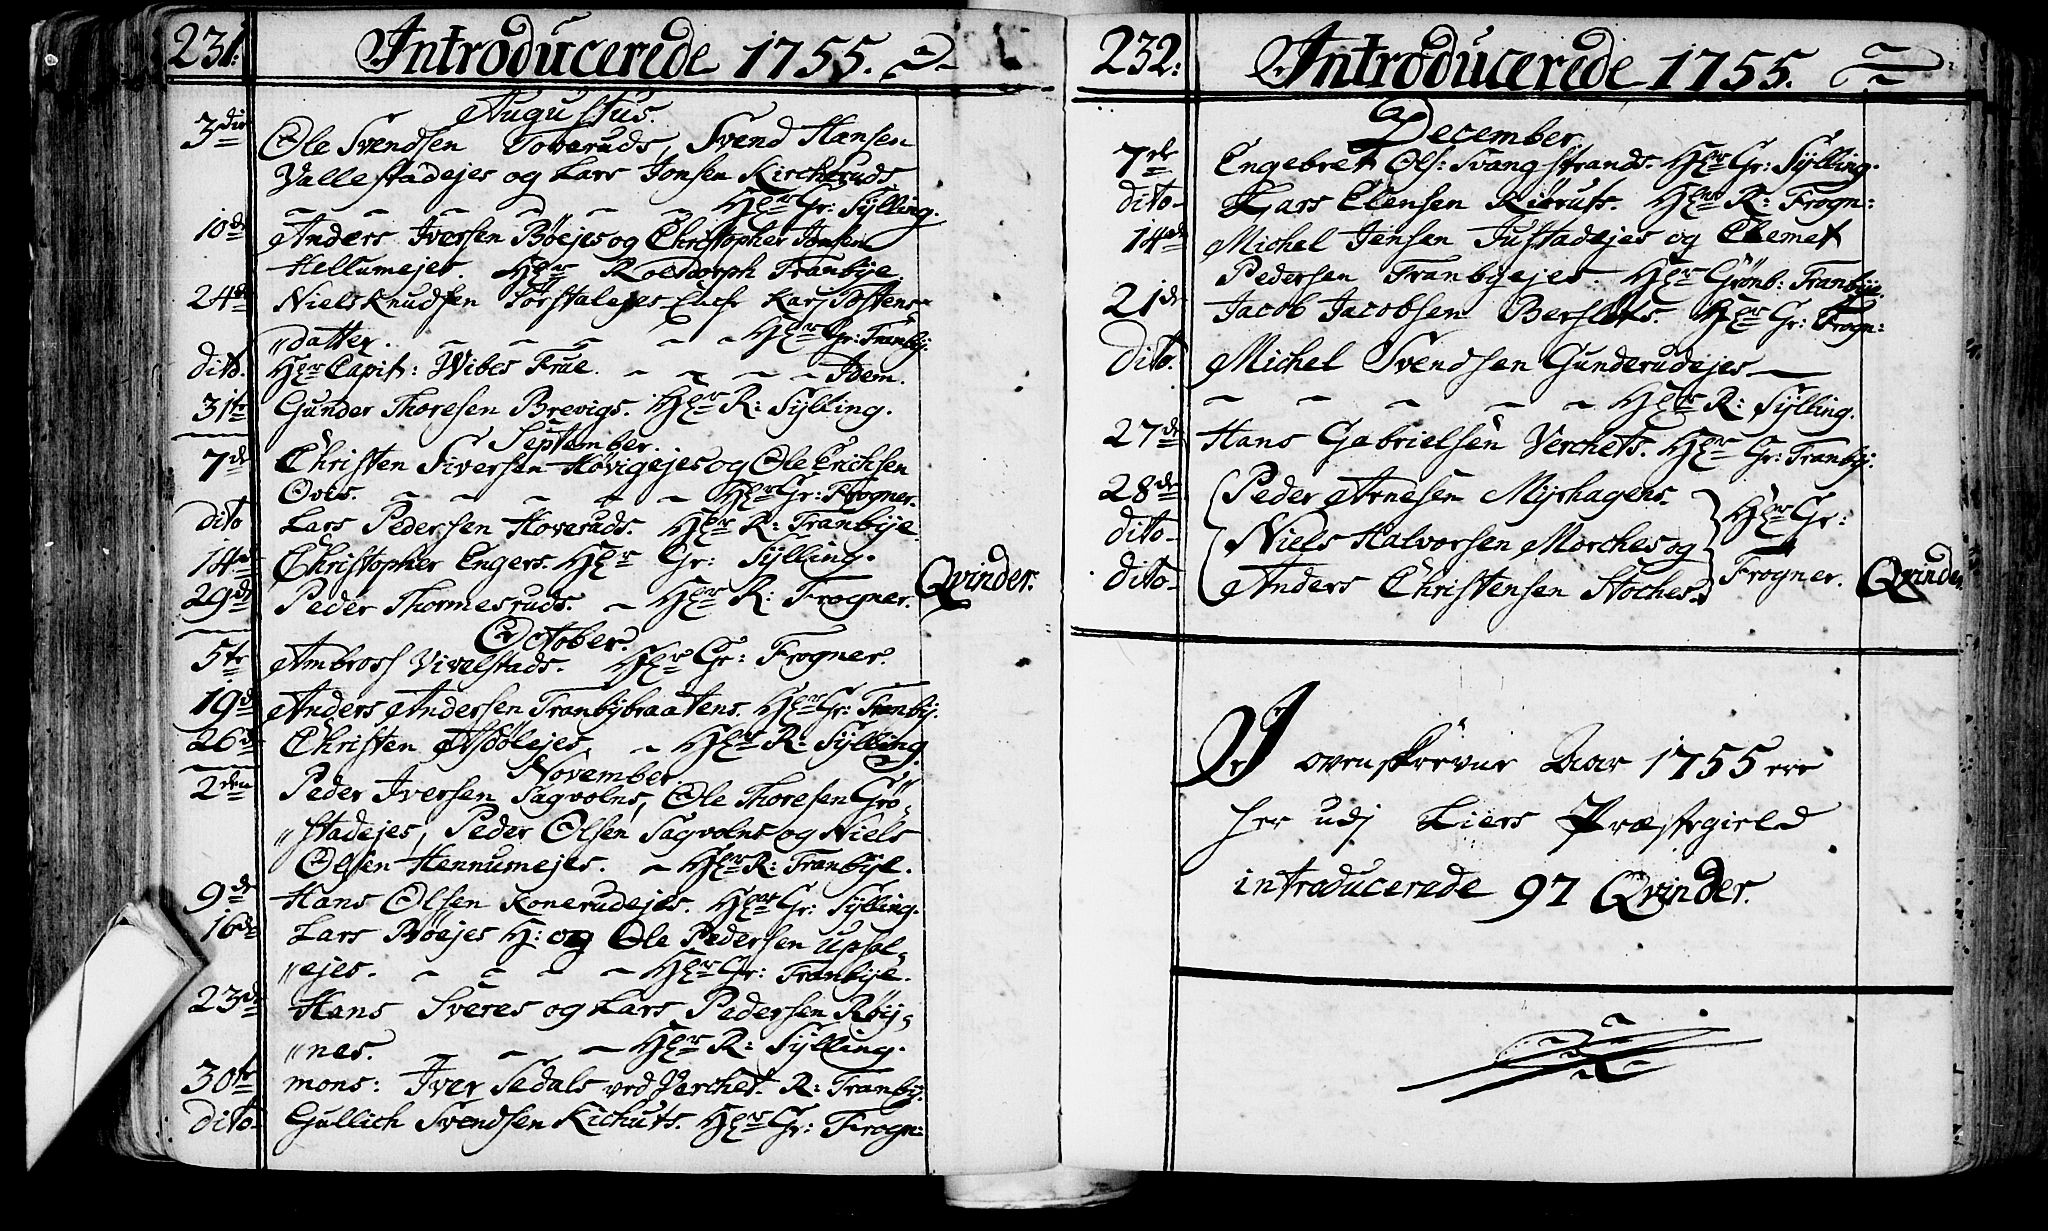 231: Introducerede 1755.
Augustus.
3die Ole Svendsen Toveruds, Svend Hansen
Vallestadejes og Lars Jonsen Kircheruds
Hr Gr: Sylling.
10de Anders Iversen Bøejes og Christopher Jonsen
Hellumejes. Hr Roedorph Tranbye
24de Niels Knudsen Lars Tostens
"datter. Hr Gr: Tranby.
dito. Hr Capit: Wibes Frue. Idem.
31te Gunder Thoresen Brevigs. Hr R: Sylling.
September.
7de Christen Siversen Høvigejes og Ole Erichsen
Oves. Hr Gr: Frogner.
dito Lars Pedersen Hoveruds. Hr R: Tranbye
14de Christopher Engers. Hr Gr: Sylling.
29de Peder Thormesruds. Hr R: Frogner. Qvinder.
October.
5te Ambross Vivelstads. Hr Gr: Frogner.
19de Anders Andersen Tranbybraatens. Hr Gr: Tranby.
26de Christen Asbølejes, Hr R: Sylling.
November
2den Peder Iversen Sagvolns, Ole Thoresen Grø,
"stadejes, Peder Olsen Sagvolns og Niels
Olsen Hennumejes. Hr R: Tranbye.
9de Hans Olsen Konerudejes. Hr Gr: Sylling.
16de Lars Bøejes H: og Ole Pedersen Upsal,
"ejes. Hr Gr: Tranbye.
23de Hans Sveres og Lars Pedersen Røy,
"nes. Hr R: Sylling.
30te mons: Iver Sedals ved Verchet. R: Tranby.
dito Gullich Svendsen Kichuts. Hr Gr: Frogn:
232: Introducerede 1755.
December
7de Engebret Ols: Svangstrands. Hr Gr: Sylling.
dito Lars Clensen Hr R: Frogn:
14de Michel Jensen Justadejes og Clemet
Pedersen Tranbyejes. Hr Grønb: Tranbye.
21de Jacob Jacobsen Hr Gr: Frogn:
Dito. Michel Svendsen Gunderudejes
Hr R: Sylling.
27de Hans Gabrielsen Verchets. Hr Gr: Tranby.
28de Peder Arnesen Myrhagens.
dito Niels Halvorsen Morches og Hr Gr:
dito Anders Christensen Stoches. Frogner. Qvinder
I ovenskrevne Aar 1755 ere
her udj Liers Præstegield
introducerede 97 Qvinder.